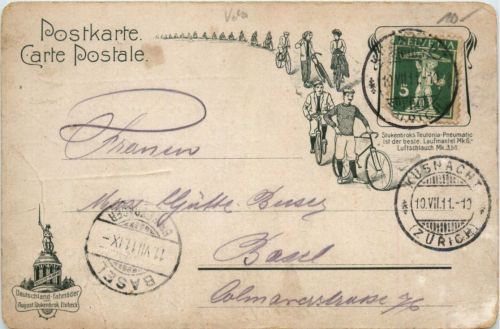 Postkarte.
Carte Postale.
HELVETIA
5
Stukenbroks Teutonia-Pneumatic
ist der beste. Laufmantel Mk 6,-
Luftschlauch Mk. 3,50.
KÜSNACHT
10.VII.11.-10
(ZÜRICH)
Frauen
Basel
BASEL
12.VII.11.IX-
Colmarerstrasse
Deutschland-Fahrräder
August Stukenbrok, Einbeck